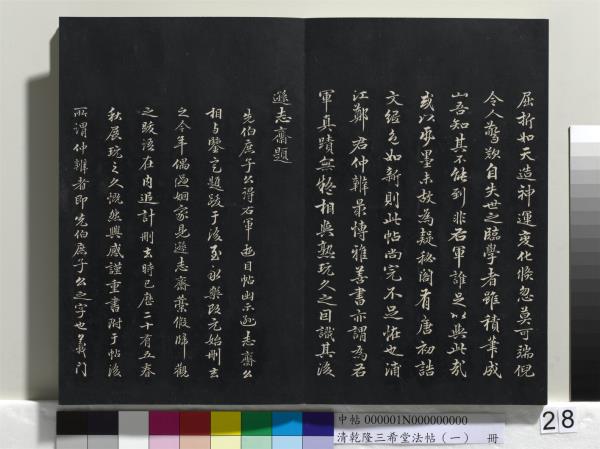 屈折如天造神運變化倏忽莫可端倪
令人驚歎自失世之臨學者雖積筆成
山吾知其不能到非右軍誰足以與此哉
或以步墨未故為疑秘閣有唐初誥
文紙色如新則此帖尚完不足怪也浦
江鄭君仲辨最博雅善書亦謂為右
軍真蹟無疑相與熟玩久之因識其後
遜志齋題
先伯庶子公得右軍此目帖出示遜志齋公
相與鑒定題跋于後至永樂改元始刪去
之今年偶過姻家見遜志齋藁假歸觀
之跋語在內追計刪去時已歷二十有五春
秋展玩之久慨然興感謹重書附于帖後
所謂仲辨者即先伯庶子公之字也義門
中帖 000001N000000000
清乾隆三希堂法帖(一) 冊
28